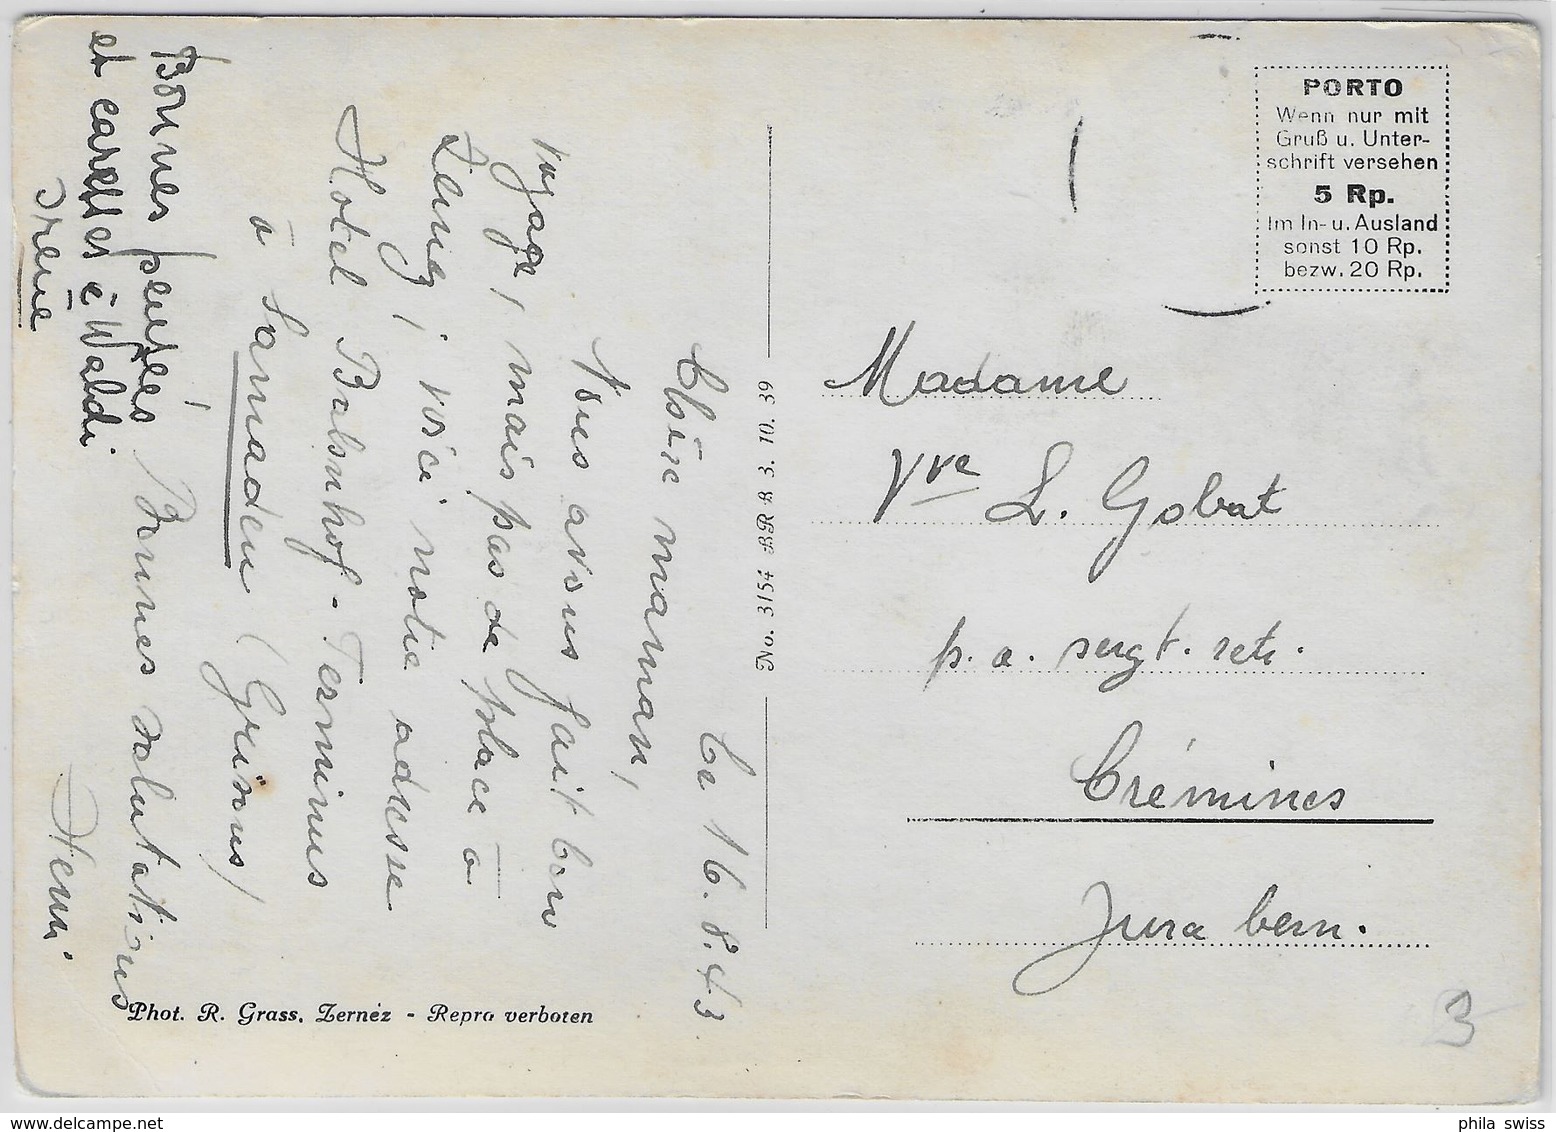 Le 16.8.43
Chère maman,
Nous avons fait bon
voyage, mais pas de place à
Zernez, voici notre adresse
Hotel Bahnhof-Terminus
à Samaden (Grisons)
Bonnes salutations
Henri
Bonnes pensées
et caresses à Waldi
Irène
Phot. R. Grass, Zernez - Repro verboten
No. 3154 BR B 3. 10. 39
PORTO
Wenn nur mit
Gruß u. Unter-
schrift versehen
5 Rp.
Im In- u. Ausland
sonst 10 Rp.
bezw. 20 Rp.
Madame
Vve L. Gobat
p.a. sergt. retr.
Crémines
Jura bern.
3
phila swiss